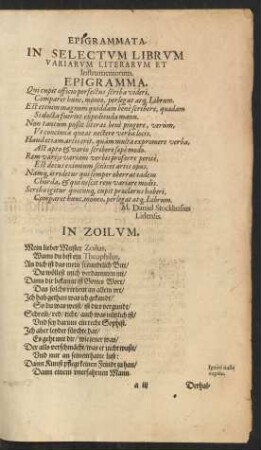 EPIGRAMMATA.
IN SELECTVM LIBRVM
VARIARVM LITERARVM ET
Instrumentorum.
EPIGRAMMA.
Qui cupit officio perfectus scriba videri,
Comparet hunc, moneo, perlegat atq; Librum.
Est etenim magnum quoddam bene scribere, quædam
Sed
Non tantum possit literas bene pingere, verùm,
Vt concinna queat nectere verba locis.
Haud etiam artis erit, quàm multa expromere verba:
Ast apte & varie scribere sæpe modo.
Rem variè, variam verbis proferre peritè,
Est decus eximium scilicet artis opus.
Namq; irridetur qui semper oberrat eadem
Chorda, & qui nescit rem variare modis.
Scriba igitur quicunq; cupit præclarus haberi,
Comparet hunc, moneo, perlegat atq; Librum.
M. Daniel Stockhusius
Lidensis.
IN ZOILVM.
Mein lieber Meister Zoilus,
Wann du bist ein Theophilus,
An dich ist das mein freundtlich Bitt/
Du wöllest mich verdammen nit/
Dann dir bekannt ist Gottes Wort/
Das solchs verbeut an allem ort/
Ich hab gethan was ich gekundt/
So du was weist/ ist dirs vergundt/
Schreib/ red/ ticht/ auch was nützlich ist/
Und sey darumb ein recht Sophist.
Ich aber leyder fürchte hart/
Es geht mit dir/ wie jener wart/
Der alls verschmächt/ was er nicht wußt/
Und nur an seinem hatte lust:
Dann Kunst pflegt keinen Feindt zu han/
Dann einen unerfahrnen Mann.
a iij
Derhal-